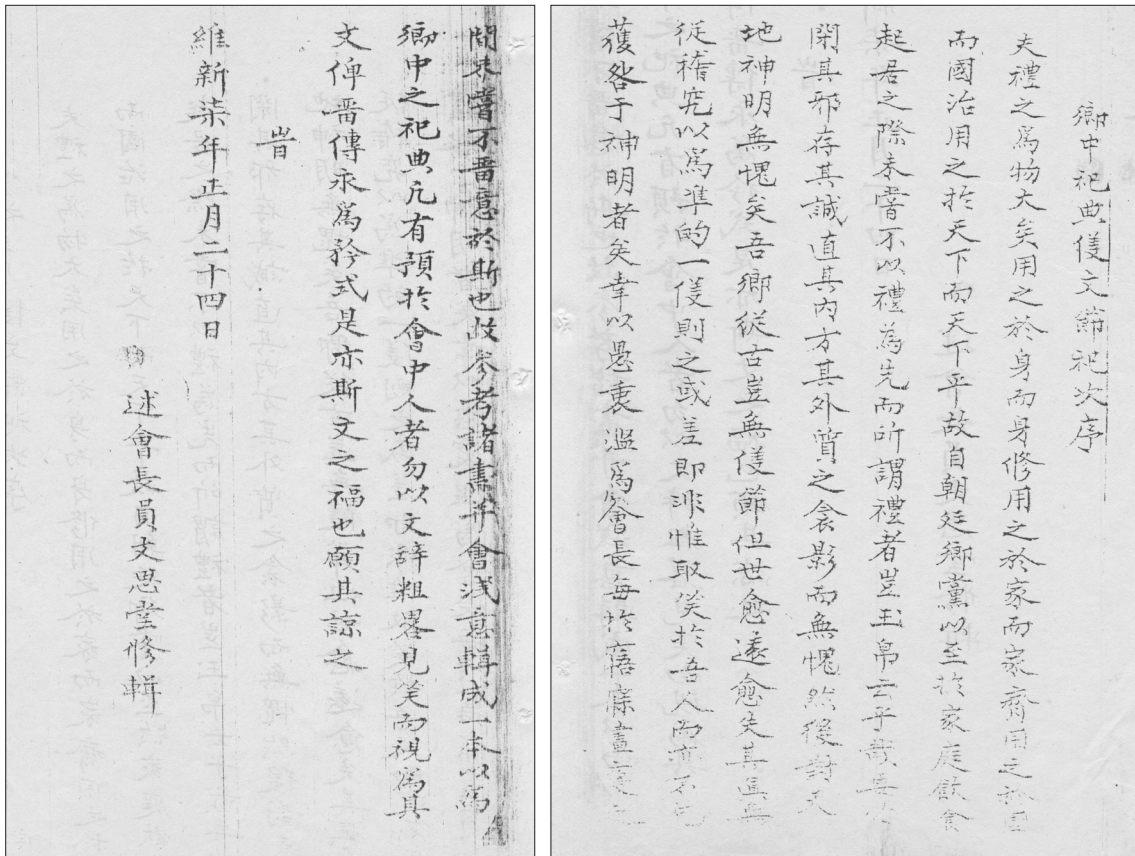 鄉中祀典仪文節祀次序
夫禮之爲物大矣用之於身而身修用之於家而家齊用之於國
而國治用之於天下而天下平故自朝廷鄉黨以至於家庭飲食
起居之際未嘗不以禮為先而所謂禮者豈玉帛云乎哉要
閑其邪存其誠直其內方其外質之衾影而無愧然後對天
地神明無愧矣吾鄉從古豈無仪節但世愈遠愈失其真無
從稽究以爲準的一仪則之或差即非惟取俟於吾人而亦不
獲咎于神明者矣幸以愚衷濫爲會長每於寤寐晝夜之
間未嘗不畱意於斯也故參考諸書并會浅意輯成一本以爲
鄉中之祀典凡有預於會中人者勿以文辭粗畧見笑而視爲具
文俾畱傳永爲矜式是亦斯文之福也願其諒之
旹
維新柒年正月二十四日
述會長員文思堂修輯